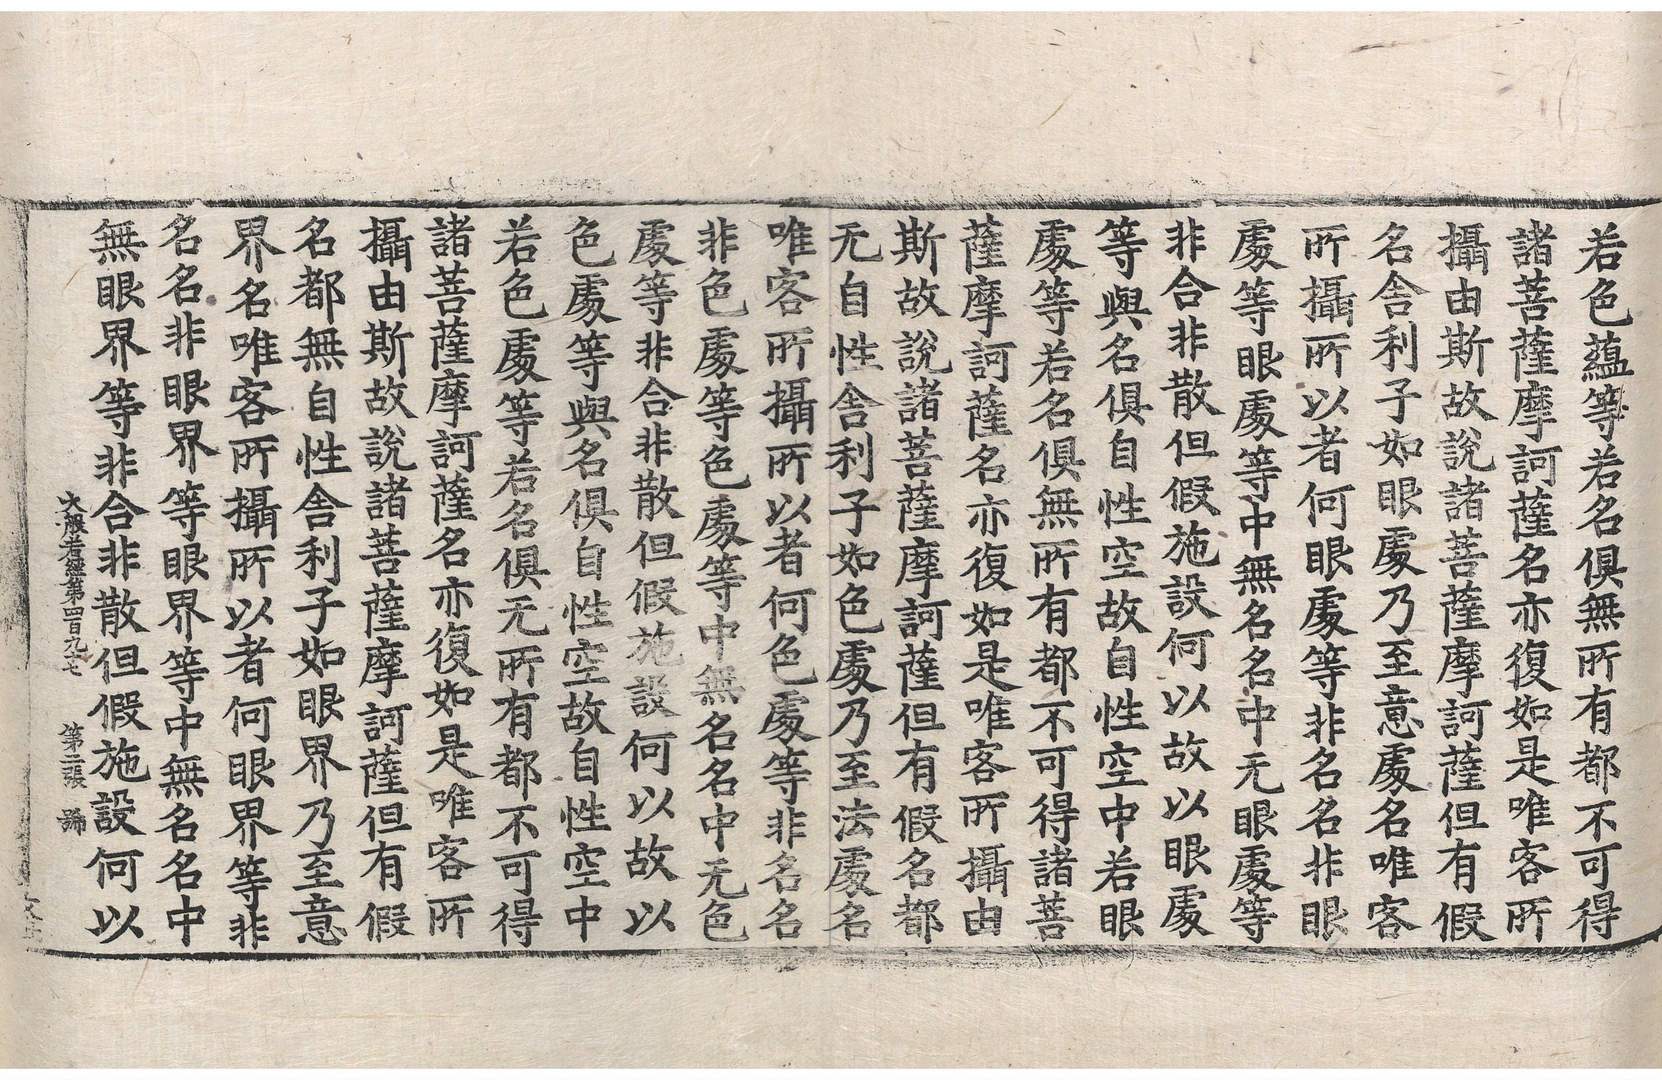 若色蘊等若名俱無所有都不可得
諸菩薩摩訶薩名亦復如是唯客所
攝由斯故說諸菩薩摩訶薩但有假
名舍利子如眼處乃至意處名唯客
所攝所以者何眼處等非名名非眼
處等眼處等中無名名中无眼處等
非合非散但假施設何以故以眼處
等與名俱自性空故自性空中若眼
處等若名俱無所有都不可得諸菩
薩摩訶薩名亦復如是唯客所攝由
斯故說諸菩薩摩訶薩但有假名都
无自性舍利子如色處乃至法處名
唯客所攝所以者何色處等非名名
非色處等色處等中無名名中无色
處等非合非散但假施設何以故以
色處等與名俱自性空故自性空中
若色處等若名俱无所有都不可得
諸菩薩摩訶薩名亦復如是唯客所
攝由斯故說諸菩薩摩訶薩但有假
名都無自性舍利子如眼界乃至意
界名唯客所攝所以者何眼界等非
名名非眼界等眼界等中無名名中
無眼界等非合非散但假施設何以
大般若經第四百九十七 第二張